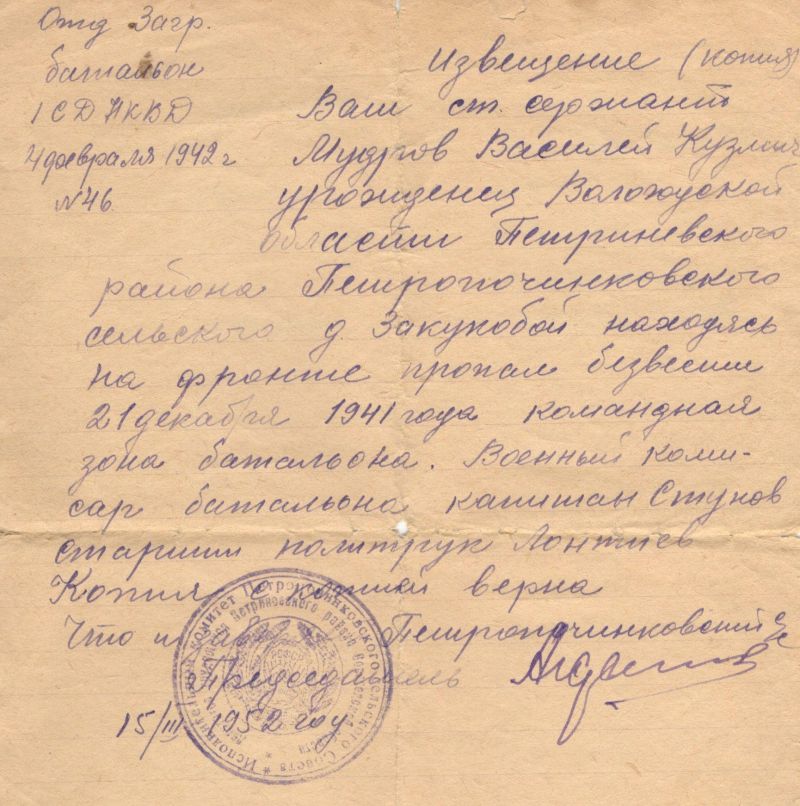 Отд Загр.
батальон
1 СД НКВД
4 февраля 1942 г
№ 46.
Извещение (копия)
Ваш ст. сержант
Мудров Василей Кузмич
урожденец Вологодской
области Петриневского
района Петропочинковского
сельского д. Закукобой находясь
на фронте пропал безвести
21 декабря 1941 года командная
зона батальона. Военный коми-
сар батальона капитан Стунов
старший политрук Лонтиев
Копия с копии верна
Что и Петропочинковский
Председатель
15/III 1952 году
Исполнительный комитет Петропочинковского сельского Совета
Петриневского района Вологодской области